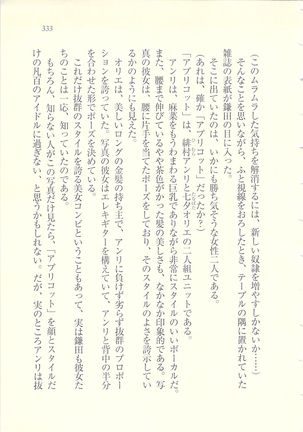 333
(このムラムラした気持ちを解消するには、新しい奴隷を増やすしかないか……)
そんなことを思いながら、ふと視線をおろしたとき、テーブルの隅に置かれていた
雑誌の表紙が鎌田の目に入った。
そこに出ていたのは、いかにも勝ち気そうな女性二人である。
(あれは、確か「アプリコット」だったか?)
「アプリコット」は、緋村アンリと七夕オリエの二人組ユニットである。
アンリは、麻菜をもうわまわる巨乳でありながら非常にスタイルのいいボーカルだ。
また、腰まで伸びているやや茶色がかった髪の美しさも、なかなか印象的である。写
真の彼女は、腰に片手を当てたポーズをしており、そのスタイルのよさを誇示してい
るかのようにも見えた。
オリエは、美しいロングの金髪の持ち主で、アンリに負けず劣らず抜群のプロポー
ションを誇っていた。写真の彼女はエレキギターを構えていて、アンリと背中の半分
を合わせた形でポーズを決めている。
これだけ抜群のスタイルを誇る美女コンビということもあって、実は鎌田も彼女た
ちのことは一応、知っていたのである。
もちろん、知らない人がこの写真だけ見たら、「アプリコット」を顔とスタイルだ
けの凡百のアイドルに過ぎない、と思うかもしれない。だが、実のところアンリは抜